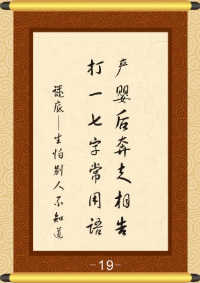 产婴后奔走相告
打一七字常用语
谜底——生怕别人不知道
-19-